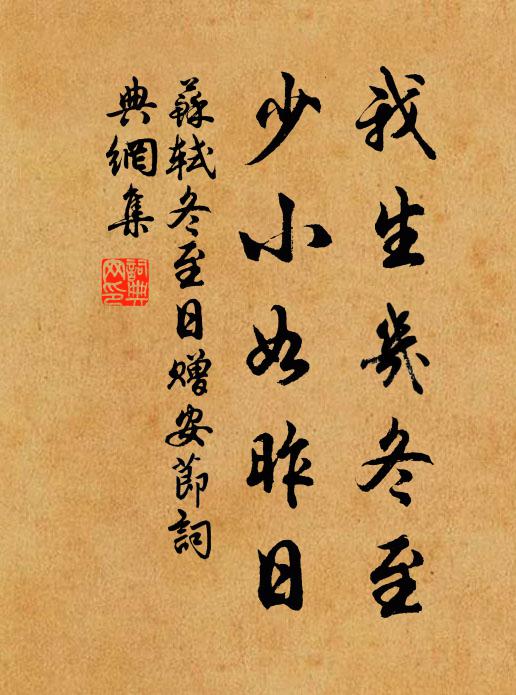 我生幾冬至
少小如昨日
蘇軾冬至日贈安節詞
典網集
詞典網印